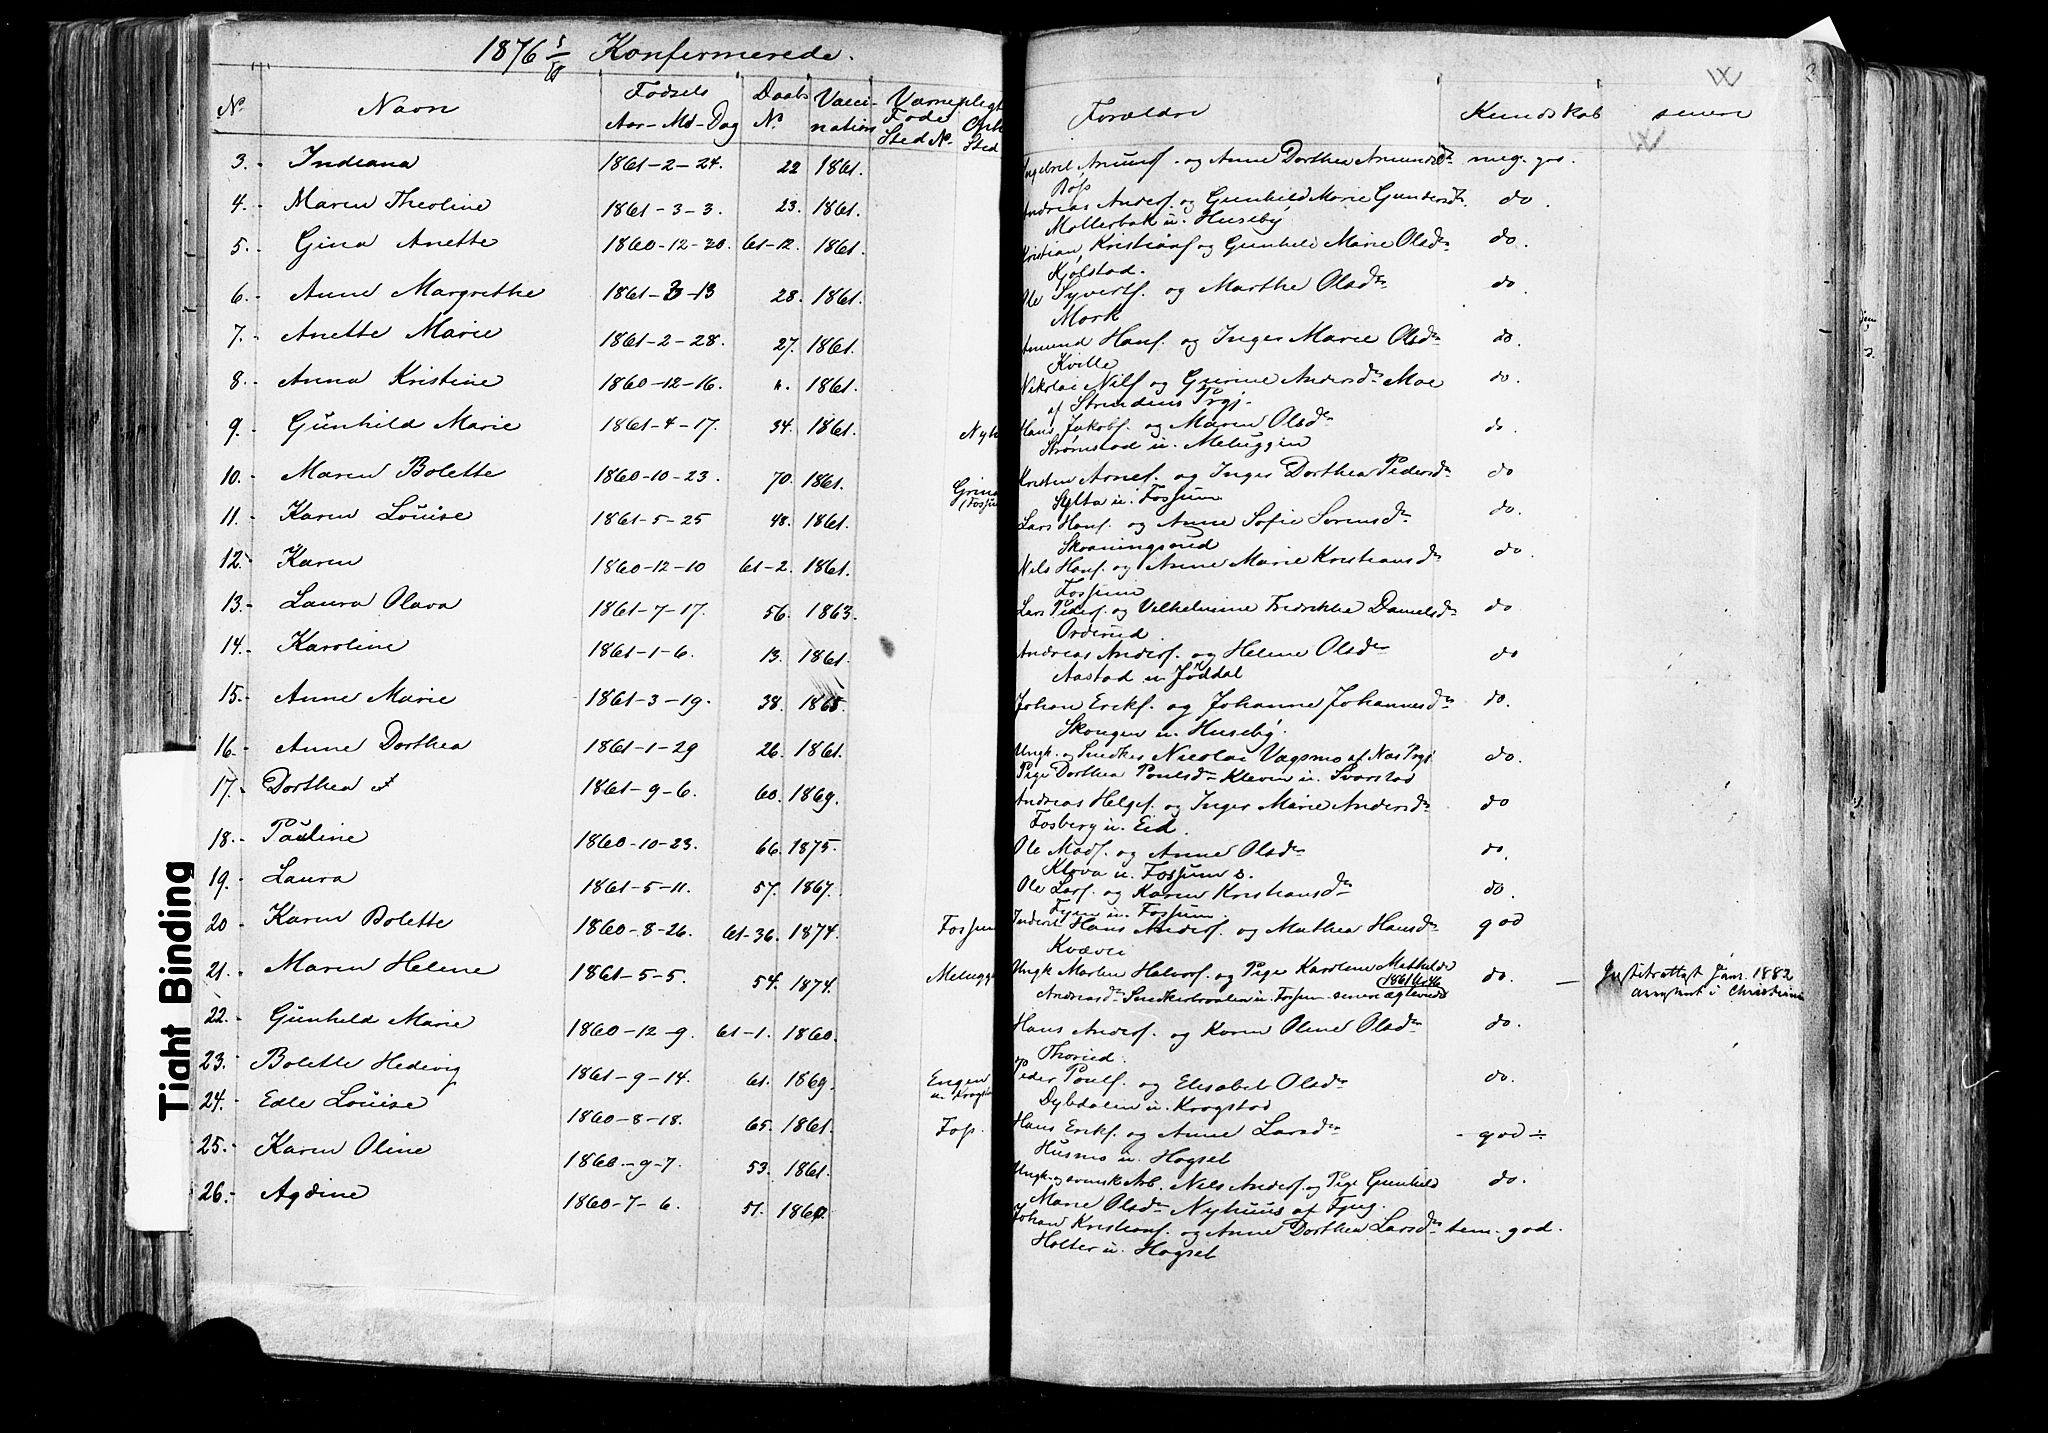 1876 Konfermerede.
No. Navn Fødsels Aar-Md-Dag Daabs No. Vacci-nation Varnepligt Føde Sted No. Forældre Kundskab senere
3. Indiana 1861-2-24. 22 1861. Amunds. og Anne Dorthea Amundsdr meg. god.
4. Maren Theoline 1861-3-3. 23. 1861. Andreas Anders. og Gunhild Marie Gundersdr. do.
Møllerbak u. Huseby
5. Gina Anette 1860-12-20. 61-12. 1861. Kristian Kristians. og Gunhild Marie Olsdr do.
Kjølstad.
6. Anne Margrethe 1861-3-13 28. 1861. Ole Syverts. og Marthe Olsdr do
Mork
7. Anette Marie 1861-2-28. 27. 1861. Amund Hans. og Inger Marie Olsdr do.
Kville
8. Anna Kristine 1860-12-16. 1861. Nikolai Nils. og Gurine Andersdr Moe do.
af Prgj.
9. Gunhild Marie 1861-4-17. 34. 1861. Nyh Hans Jakobs. og Maren Olsdr do.
Strømstad u. Meluggin
10. Maren Bolette 1860-10-23. 70. 1861. Kristen Arnes. og Inger Dorthea Pedersdr do
Sylta u. Fossum
11. Karen Louise 1861-5-25 48. 1861. Lars Hans. og Anne Sofie Sorensdr do.
Skaaningsrud
12. Karen 1860-12-10 61-2. 1861. Nils Hans. og Anne Marie Kristiansdr do.
Fossum
13. Laura Olava 1861-7-17. 56. 1863. Lars Peders. og Vilhelmine Fredrikke Danielsdr do
Orderud.
14. Karoline 1861-1-6. 13. 1861. Andreas Anders. og Helene Olsdr do
Aastad u. Jøddal
15. Anne Marie 1861-3-19. 38. 1865. Johan Eriks. og Johanne Johannesdr do.
Skougen u. Huseby.
16. Anne Dorthea 1861-1-29 26. 1861. Ungk. og Snedker Nicolai Vagsmo af Næs Prgj do.
Pige Dorthea Poulsdr Kleven u. Svarstad
17. Dorthea 1861-9-6. 60. 1869. Andreas Helges. og Inger Marie Andersdr do
Fosberg u. Eid.
18. Pauline 1860-10-23. 66. 1875. Ole Mads. og Anne Olsdr do.
Kløva u. Fossum s.
19. Laura 1861-5-11. 57. 1867. Ole Lars. og Karen Kristiansdr do.
u. Fossum.
20 Karen Bolette 1860-8-26. 61-36. 1874. Fossum Inderst Hans Anders. og Mathea Hansdr god
Kvævei
21. Maren Helene 1861-5-5. 54. 1874. Melugg Ungk Morten Halvors. og Pige Karoline Mathilde do.
Andreasdr u. Fossum senere 1861 No 46 Jan. 1882 i Christiania
22. Gunhild Marie 1860-12-9. 61-1. 1860. Hans Anders. og Karen Oline Olsdr do.
Thorud.
23. Bolette Hedevig 1861-9-14. 61. 1869. Engen u. Krogst Peder Pouls. og Elisabet Olsdr do.
Dybdalen u. Krogstad
24. Edle Louise 1860-8-18. 65. 1861. Foss. Hans Eriks. og Anne Larsdr - god ÷
Husmo u. Hogset
25. Karen Oline 1860-9-7. 53. 1861. Ungk. og svensk Arb. Nils Anders. og Pige Gunhild do.
Marie Olsdr Nyhuus af
26. Agdine 1860-7-6. 51. 1860. Johan Kristians. og Anne Dorthea Larsdr tem. god.
Holter u. Hogset
Tight Binding